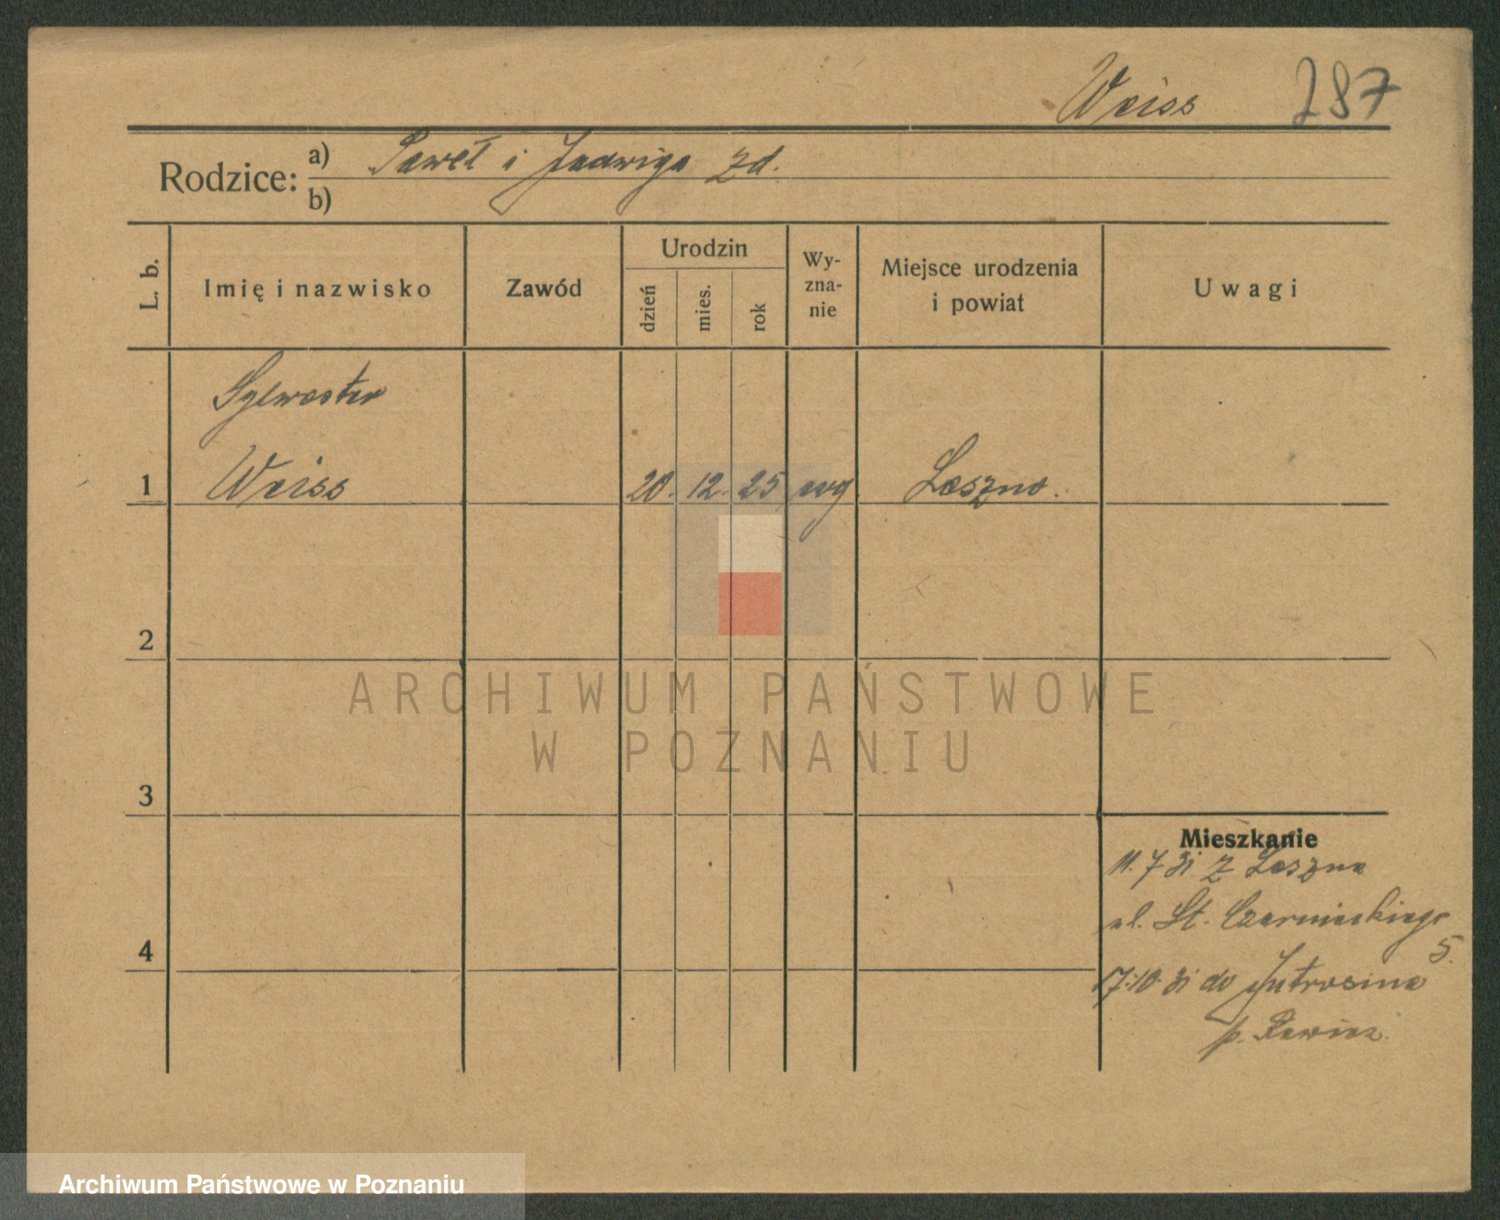 Weiss 287
Rodzice: a) Paweł i Jadwiga zd.
b)
L. b.
Imię i nazwisko
Zawód
Urodzin
dzień
mies.
rok
Wy-
zna-
nie
Miejsce urodzenia
i powiat
Uwagi
Sylwester
1 Weiss 20. 12. 25 ewg. Leszno.
2
ARCHIWUM PAŃSTWOWE
W POZNANIU
3
Mieszkanie
11.7.31 z Leszna
ul. St. Czarnieckiego
5.
4
17.10.31 do Jutrosina
p. Rawicz.
Archiwum Państwowe w Poznaniu